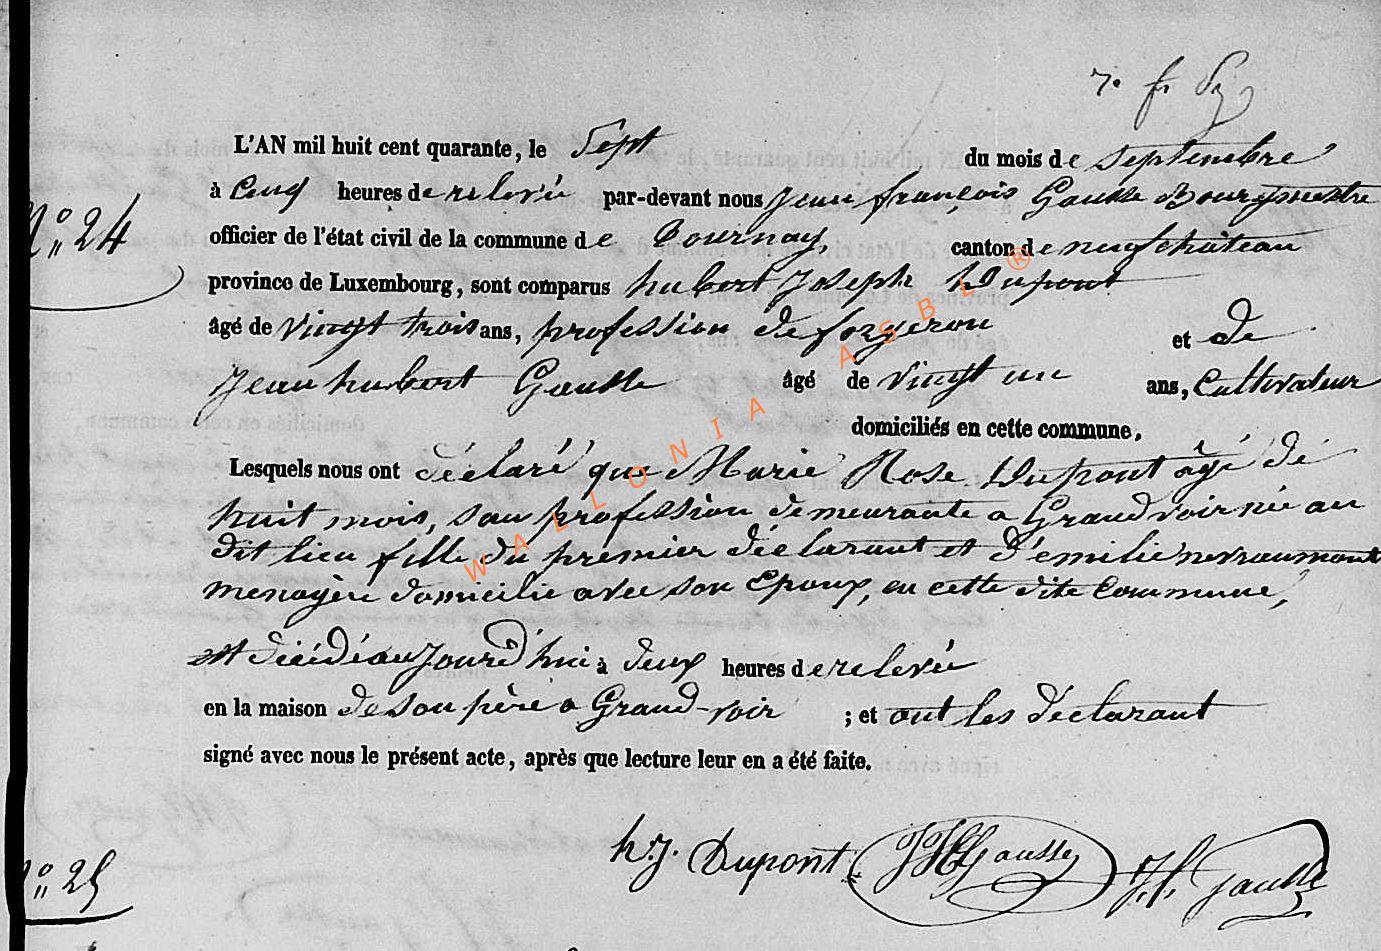 7e f. D
L'AN mil huit cent quarante, le Sept du mois de septembre
à Cinq heures de relevée par-devant nous Jean françois Gausse Bourgmestre
N° 24
officier de l'état civil de la commune de Tournay, canton de neufchateau
province de Luxembourg, sont comparus hubert Joseph Dupont
âgé de vingt trois ans, profession de forgeron et de
Jean hubert Gausse âgé de vingt un ans, Cultivateur
domiciliés en cette commune,
Lesquels nous ont déclaré que Marie Rose Dupont âgé de
huit mois, san profession demeurante a Grandvoir née au
dit lieu fille du premier déclarant et d'émilie nevraumont
menagère domicilie avec son Epoux, en cette dite Commune,
est décédé aujourd'hui à deux heures de relevée
en la maison de son père a Grand-voir ; et ont les déclarant
signé avec nous le présent acte, après que lecture leur en a été faite.
h.j. Dupont JH Gausse J.f. Gausse
N° 25
WALLONIA ASBL ®